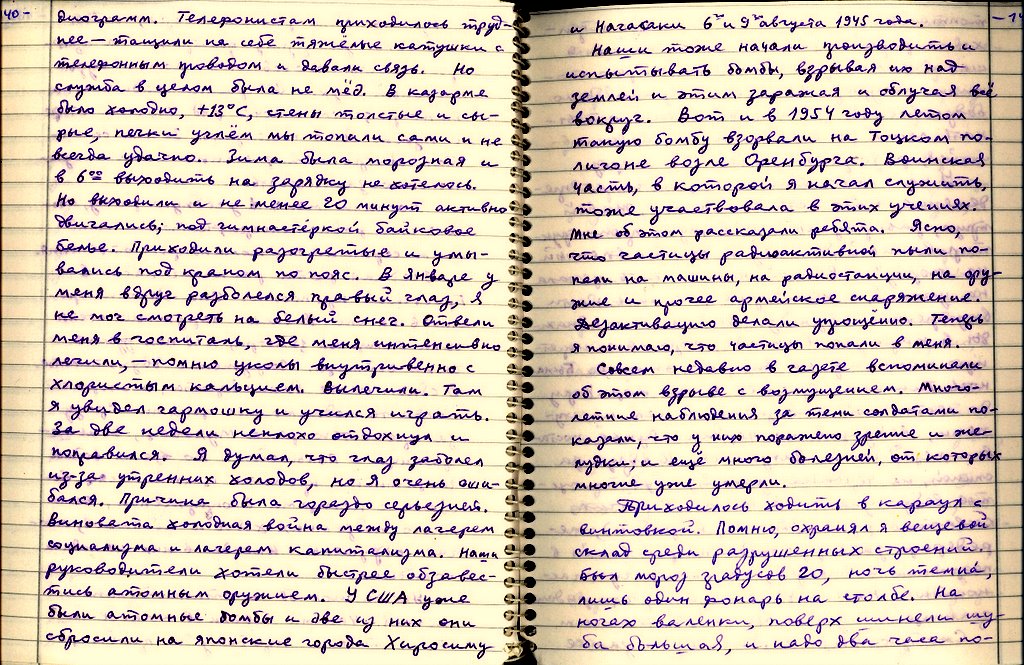 40-
диограмм. Телефонистам приходилось труд-
нее — тащили на себе тяжёлые катушки с
телефонным проводом и давали связь. Но
служба в целом была не мёд. В казарме
было холодно, +13°С, стены толстые и сы-
рые, печки углём мы топили сами и не
всегда удачно. Зима была морозная и
в 6⁰⁰ выходить на зарядку не хотелось.
Но выходили и не менее 20 минут активно
двигались; под гимнастёркой байковое
белье. Приходили разогретые и умы-
вались под краном по пояс. В январе у
меня вдруг разболелся правый глаз, я
не мог смотреть на белый снег. Отвели
меня в госпиталь, где меня интенсивно
лечили, — помню уколы внутривенно с
хлористым кальцием. Вылечили. Там
я увидел гармошку и учился играть.
За две недели неплохо отдохнул и
поправился. Я думал, что глаз заболел
из-за утренних холодов, но я очень оши-
бался. Причина была гораздо серьезней.
Виновата холодная война между лагерем
социализма и лагерем капитализма. Наши
руководители хотели быстрее обзавес-
тись атомным оружием. У США уже
были атомные бомбы и две из них они
сбросили на японские города Хиросиму
и Нагасаки 6ᵍᵒ и 9ᵍᵒ августа 1945 года.
Наши тоже начали производить и
испытывать бомбы, взрывая их над
землей и этим заражая и облучая всё
вокруг. Вот и в 1954 году летом
такую бомбу взорвали на Тоцком по-
лигоне возле Оренбурга. Воинская
часть, в которой я начал служить,
тоже участвовала в этих учениях.
Мне об этом рассказали ребята. Ясно,
что частицы радиоактивной пыли по-
пали на машины, на радиостанции, на ору-
жие и прочее армейское снаряжение.
Дезактивацию делали упрощённо. Теперь
я понимаю, что частицы попали в меня.
Совсем недавно в газете вспоминали
об этом взрыве с возмущением. Много-
летние наблюдения за теми солдатами по-
казали, что у них поражено зрение и же-
лудки; и ещё много болезней, от которых
многие уже умерли.
Приходилось ходить в караул с
винтовкой. Помню, охранял я вещевой
склад среди разрушенных строений.
Был мороз градусов 20, ночь темна,
лишь один фонарь на столбе. На
ногах валенки, поверх шинели шу-
ба большая, и надо два часа по-